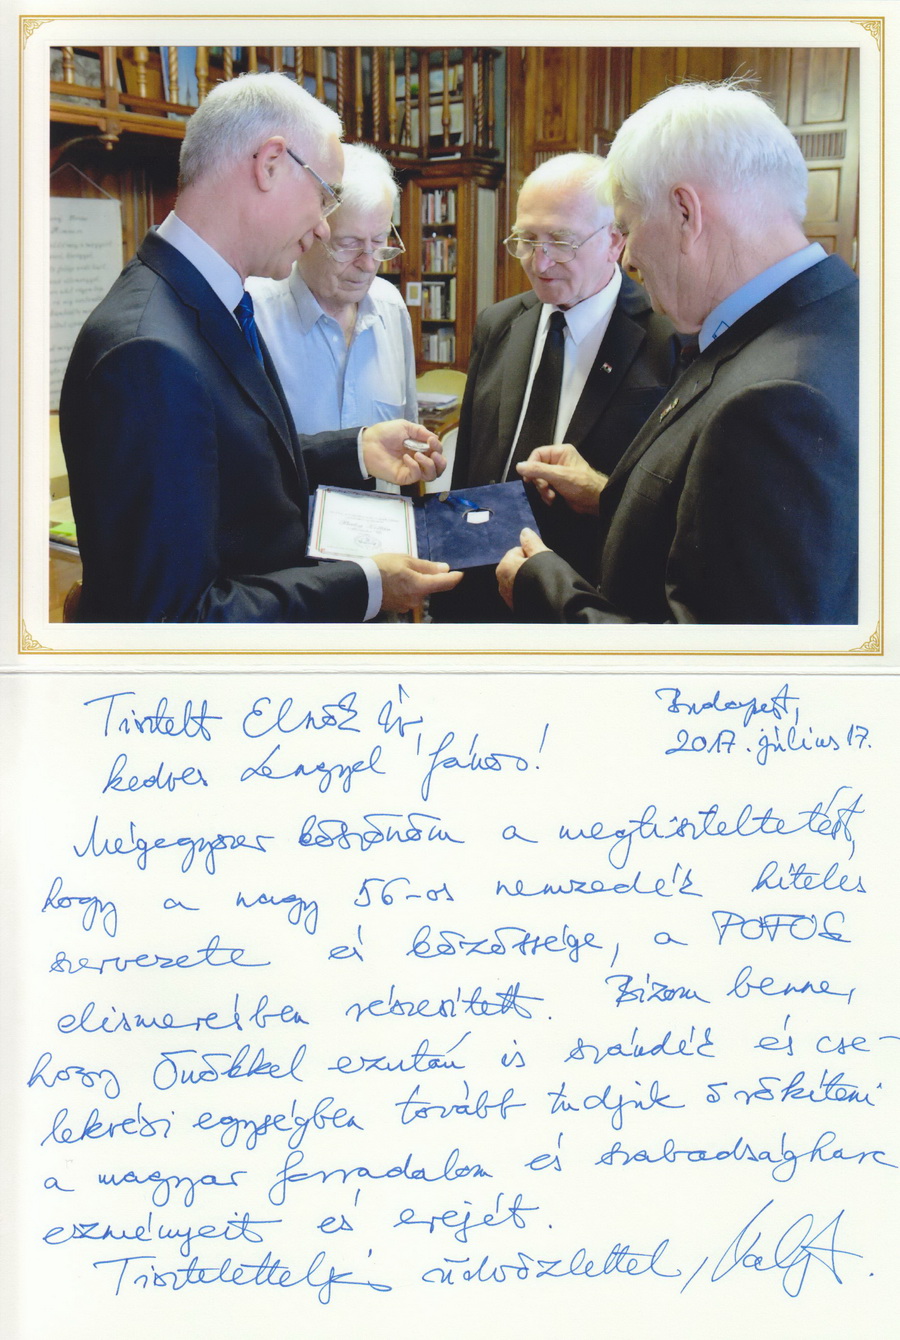 Budapest,
2017. július 17.
Tisztelt Elnök Úr,
kedves Lengyel János!
Mégegyszer köszönöm a megtiszteltetést,
hogy a nagy 56-os nemzedék hiteles
szervezete és közössége, a POFOSZ
elismerésben részesített. Bízom benne,
hogy Önökkel ezután is szándék és cse-
lekvési egységben tovább tudjuk örökíteni
a magyar forradalom és szabadságharc
eszményeit és erejét.
Tisztelettel és üdvözlettel,